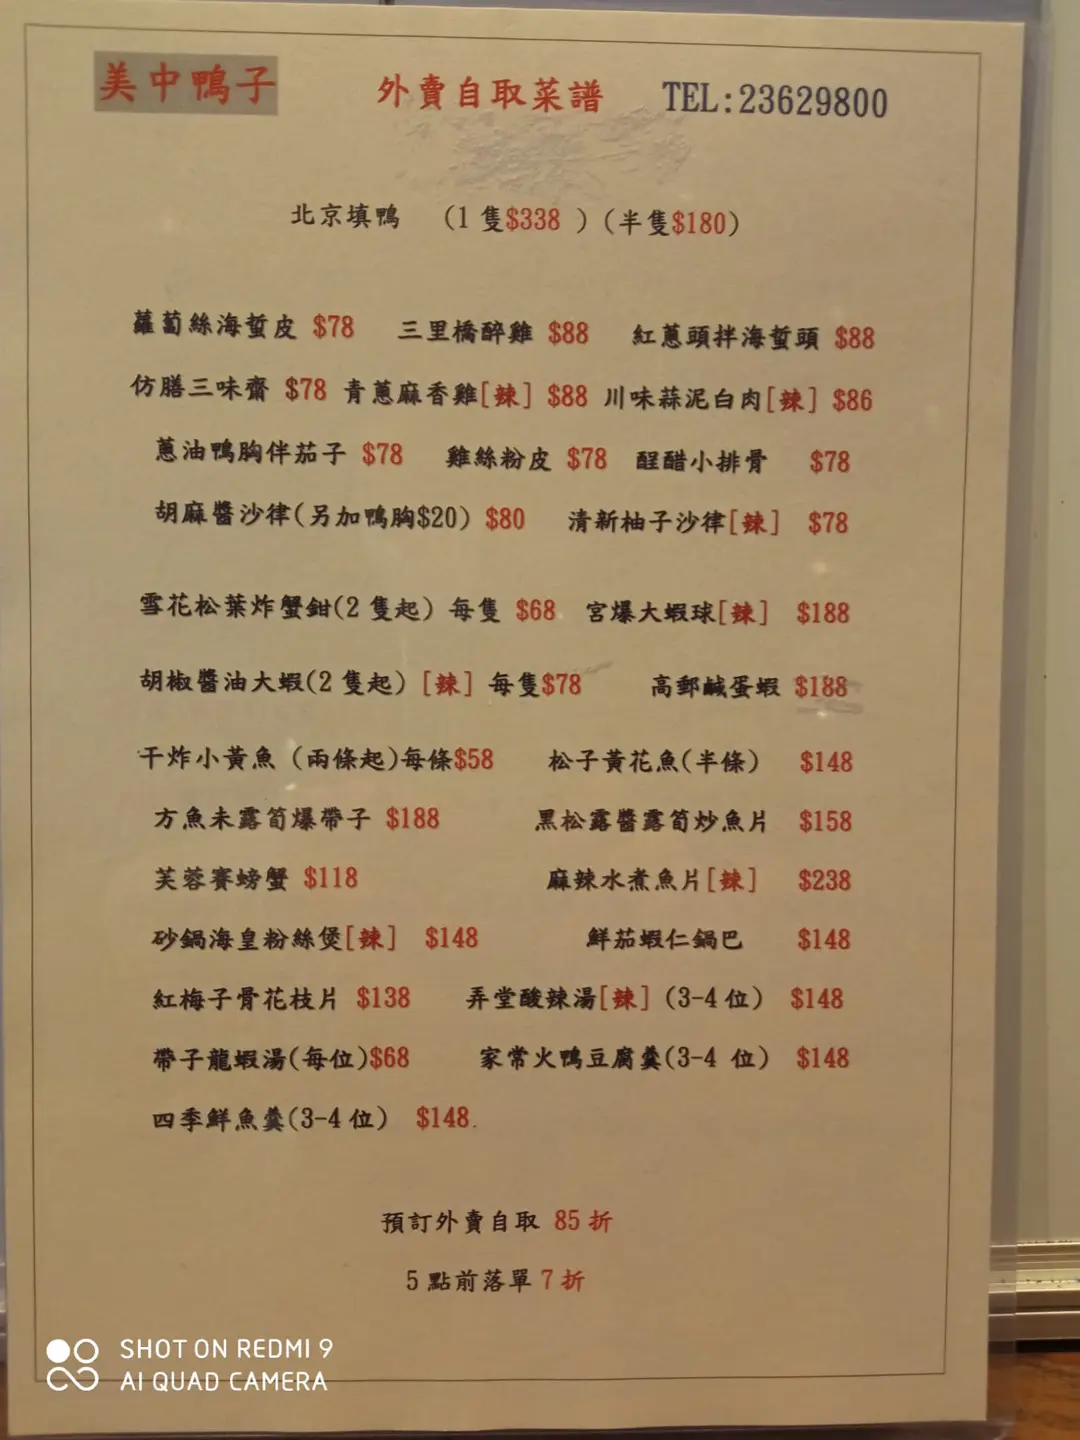 美中鴨子 外賣自取菜譜 TEL:23629800
北京填鴨 (1 隻$338 ) (半隻$180)
蘿蔔絲海蜇皮 $78 三里橋醉雞 $88 紅蔥頭拌海蜇頭 $88
仿膳三味齋 $78 青蔥麻香雞[辣] $88 川味蒜泥白肉[辣] $86
蔥油鴨胸伴茄子 $78 雞絲粉皮 $78 酲醋小排骨 $78
胡麻醬沙律(另加鴨胸$20) $80 清新柚子沙律[辣] $78
雪花松葉炸蟹鉗(2 隻起) 每隻 $68 宮爆大蝦球[辣] $188
胡椒醬油大蝦(2 隻起) [辣] 每隻$78 高郵鹹蛋蝦 $188
干炸小黃魚 (兩條起)每條$58 松子黃花魚(半條) $148
方魚末露筍爆帶子 $188 黑松露醬露筍炒魚片 $158
芙蓉賽螃蟹 $118 麻辣水煮魚片[辣] $238
砂鍋海皇粉絲煲[辣] $148 鮮茄蝦仁鍋巴 $148
紅梅子骨花枝片 $138 弄堂酸辣湯[辣] (3-4 位) $148
帶子龍蝦湯(每位)$68 家常火鴨豆腐羹(3-4 位) $148
四季鮮魚羹(3-4 位) $148.
預訂外賣自取 85 折
5 點前落單 7 折
SHOT ON REDMI 9
AI QUAD CAMERA